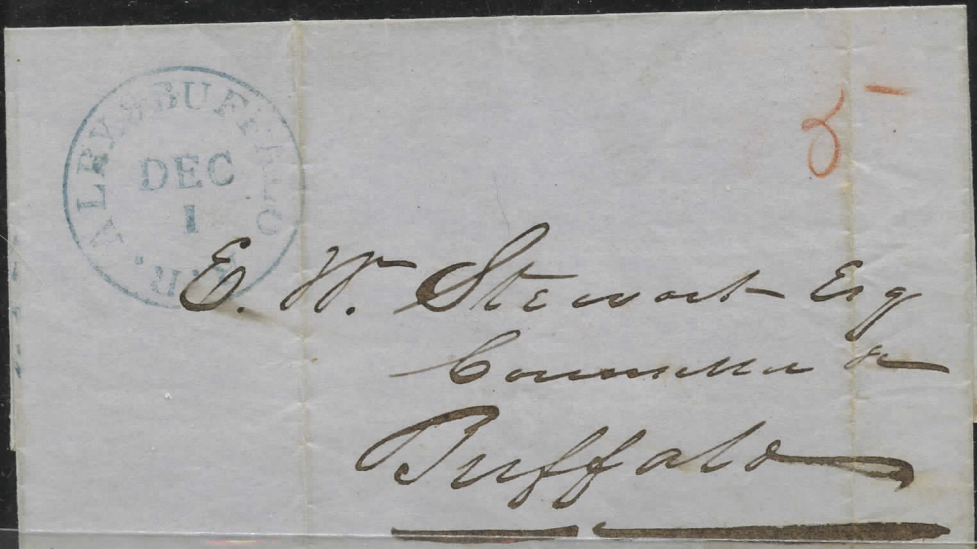 ALBY. & BUFFALO R.R.
DEC
1
5
E. W. Stewart Esq
Counsellor &
Buffalo